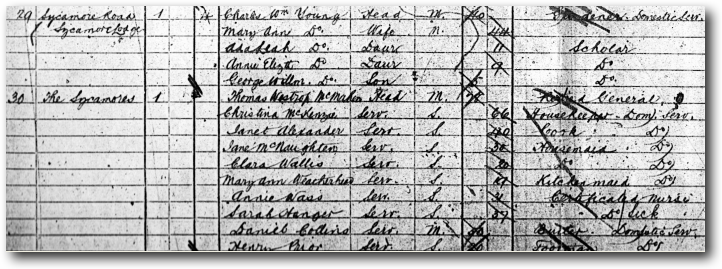 29 Sycamore Road 1 Charles Wm Young Head M. 40 Gardener Domestic Serv.
Sycamore Lodge Mary Ann Do Wife M. 44
Do Daur 11 Scholar
Annie Elizth Do Daur 9 Do
George Do Son Do
30 The Sycamores 1 Thomas Westrop McMahon Head M. Retired General
Christina McKenzie Serv. S. 66 Housekeeper Dom. Serv.
Janet Alexander Serv. S. 40 Cook Do
Jane McNaughton Serv. S. Housemaid Do
Clara Wallis Serv. S. Do Do
Mary Ann Serv. S. Kitchenmaid Do
Annie Wass Serv. S. Certificated Nurse
Sarah Serv. S. Do Sick
Daniel Collins Serv. M. Butler Domestic Serv.
Henry Prior Serv. S. Footman Do